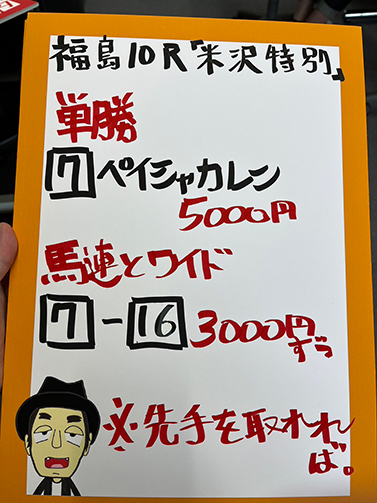 福島10R「米沢特別」
単勝
7 ペイシャカレン
5000円
馬連とワイド
7-16 3000円
ずつ
※先手を取れれ
ば。